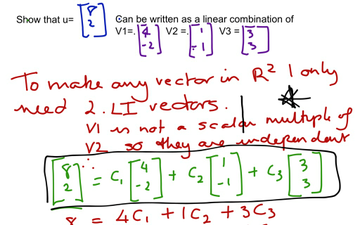 Show that u= [8 2] Can be written as a linear combination of
V1=. [4 -2] V2 = [1 -1] V3 = [3 3]
To make any vector in R² I only
need 2 LI vectors.
V1 is not a scalar multiple of
V2 so they are independent
∴
[8 2] = C₁ [4 -2] + C₂ [1 -1] + C₃ [3 3]
8 = 4C₁ + 1C₂ + 3C₃